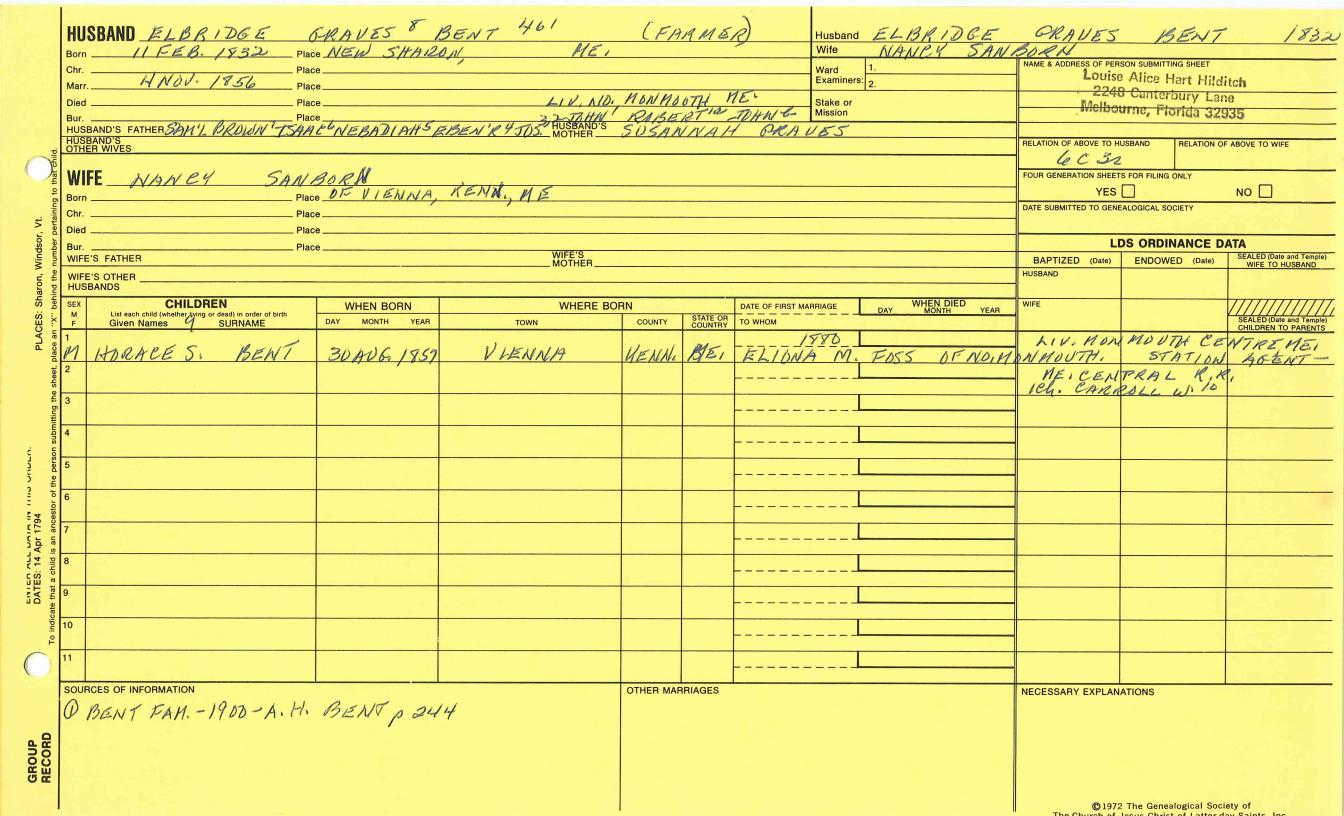 HUSBAND ELBRIDGE GRAVES 8 BENT 461 (FARMER)
Born 11 FEB. 1832 Place NEW SHARON, ME.
Chr. Place
Marr. 4 NOV. 1856 Place
Died Place LIV. NO. MONMOUTH ME.
Bur. Place JOHN ROBERT JOHN
HUSBAND'S FATHER SAM'L BROWN 7 ISAAC 6 NEBADIAH 5 EBEN'R 4 JOS. HUSBAND'S MOTHER SUSANNAH GRAVES
HUSBAND'S OTHER WIVES
Husband ELBRIDGE GRAVES BENT 1832
Wife NANCY SANBORN
Ward Examiners: 1.
2.
Stake or Mission
NAME & ADDRESS OF PERSON SUBMITTING SHEET
Louise Alice Hart Hilditch
2248 Canterbury Lane
Melbourne, Florida 32935
RELATION OF ABOVE TO HUSBAND RELATION OF ABOVE TO WIFE
6C 3r
FOUR GENERATION SHEETS FOR FILING ONLY
YES NO
DATE SUBMITTED TO GENEALOGICAL SOCIETY
WIFE NANCY SANBORN
Born Place OF VIENNA, KENN., ME
Chr. Place
Died Place
Bur. Place
WIFE'S FATHER WIFE'S MOTHER
WIFE'S OTHER HUSBANDS
LDS ORDINANCE DATA
BAPTIZED (Date) ENDOWED (Date) SEALED (Date and Temple) WIFE TO HUSBAND
HUSBAND
WIFE
SEALED (Date and Temple) CHILDREN TO PARENTS
SEX M F
CHILDREN
List each child (whether living or dead) in order of birth
Given Names 9 SURNAME
WHEN BORN
DAY MONTH YEAR
WHERE BORN
TOWN COUNTY STATE OR COUNTRY
DATE OF FIRST MARRIAGE
TO WHOM
WHEN DIED
DAY MONTH YEAR
1 M HORACE S. BENT 30 AUG. 1857 VIENNA KENN. ME. 1880
ELIDNA M. FOSS OF NO. MONMOUTH.
LIV. MONMOUTH CENTRE ME.
STATION AGENT —
ME. CENTRAL R.R.
1 Ch. CARROLL W. 10
2
3
4
5
6
7
8
9
10
11
SOURCES OF INFORMATION
① BENT FAM. - 1900 - A. H. BENT p 244
OTHER MARRIAGES
NECESSARY EXPLANATIONS
©1972 The Genealogical Society of
The Church of Jesus Christ of Latter-day Saints, Inc.
PLACES: Sharon, Windsor, Vt.
To indicate that a child is an ancestor of the person submitting the sheet, place an "X" behind the number pertaining to that child.
ENTER ALL DATA IN THIS ORDER:
DATES: 14 Apr 1794
GROUP RECORD